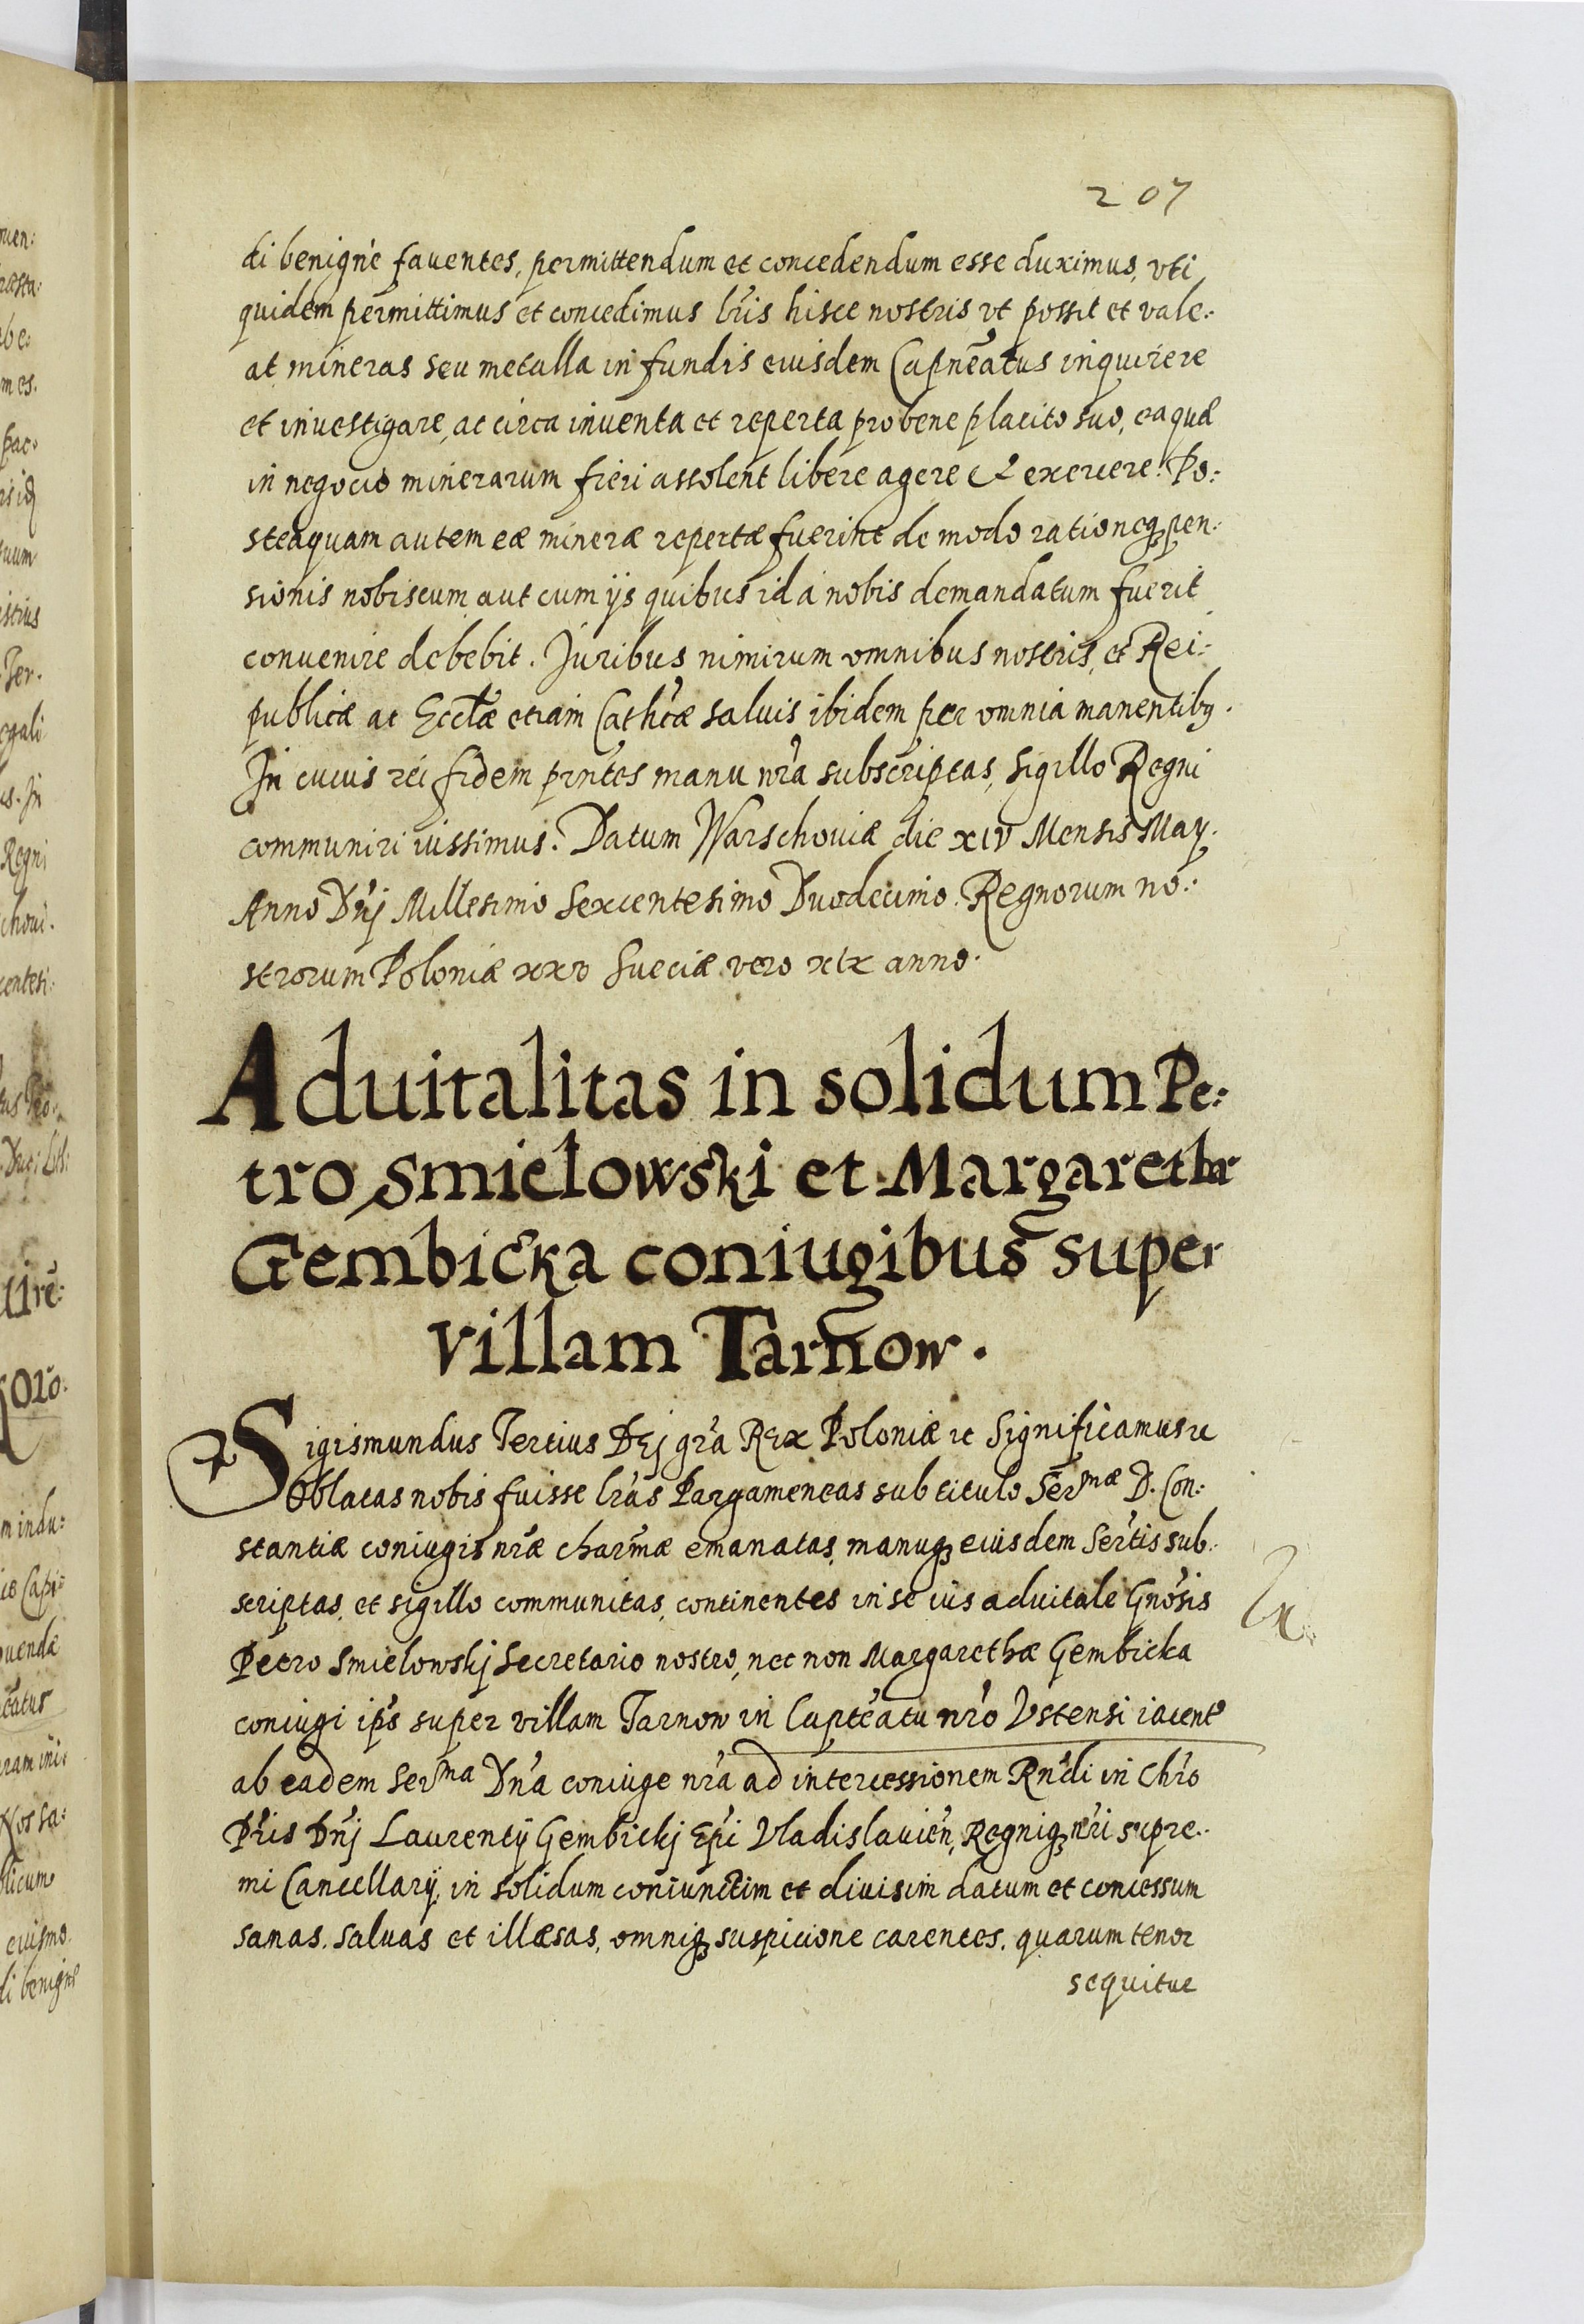 207
di benignè fauentes, permittendum et concedendum esse duximus, vti
quidem permittimus et concedimus lr̃is hisce nostris vt possit et vale:
at mineras seu metalla in fundis eiusdem Capñeatus inquirere
et inuestigare, ac circa inuenta et reperta pro bene placito suo, ea quæ
in negocio minerarum fieri assolent libere agere & exercere. Po:
steaquam autem eæ mineræ repertæ fuerint de modo rationeq₃ pen:
sionis nobiscum aut cum ijs quibus id á nobis demandatum fuerit
conuenire debebit. Juribus nimirum omnibus nostris, et Rei:
publicæ ac Eccłæ etiam Cathcæ saluis ibidem per omnia manentibɂ.
In cuius rei fidem pñtes manu nr̃a subscriptas, Sigillo Regni
communiri iussimus. Datum Warschouiæ die xiv Mensis May.
Anno Dñj Millesimo Sexcentesimo Duodecimo. Regnorum no:
strorum Poloniæ xxv Sueciæ vero xix anno.
Aduitalitas in solidum Pe:
tro Smielowski et Margarethæ
Gembicka coniugibus super
villam Tarnow.
Sigismundus Tertius DEj gr̃a REx Poloniæ ꝛc Significamus ꝛc
Oblatas nobis fuisse lr̃as Pargameneas sub titulo Serᵐᵃᵉ D. Con:
stantiæ coniugis nr̃æ charm̃æ emanatas, manuq₃ eiusdem Sert̃is sub:
scriptas, et sigillo communitas, continentes in se ius aduitale Gnõsis
Petro Smielowskj Secretario nostro, nec non Margarethæ Gembicka
coniugi ip̃s super villam Tarnow in Capt̃eatu nr̃o Vstensi iacent
ab eadem Serᵐᵃ Dñ̃a coniuge nr̃a ad intercessionem Rñdi in Chr̃o
Pr̃is Dñj Laurentij Gembickj Ep̃i Vladislauieñ, Regniq₃ nr̃i supre:
mi Cancellarij, in solidum coniunctim et diuisim datum et concessum
sanas, saluas et illæsas, omniq₃ suspicione carentes, quarum tenor
sequitur